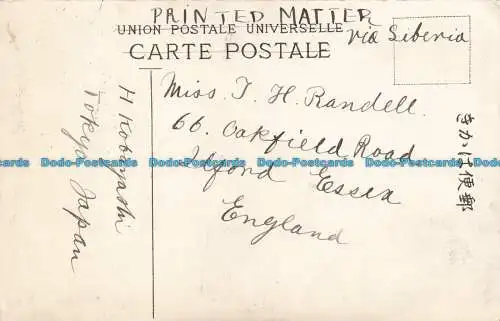 PRINTED MATTER
UNION POSTALE UNIVERSELLE
CARTE POSTALE
via Siberia
Miss. T. H. Randell.
66. Oakfield Road
Ilford Essex
England
H Kobayashi
Tokyo Japan
きかは便郵
Dodo-Postcards Dodo-Postcards Dodo-Postcards Dodo-Postcards Dodo-Postcards